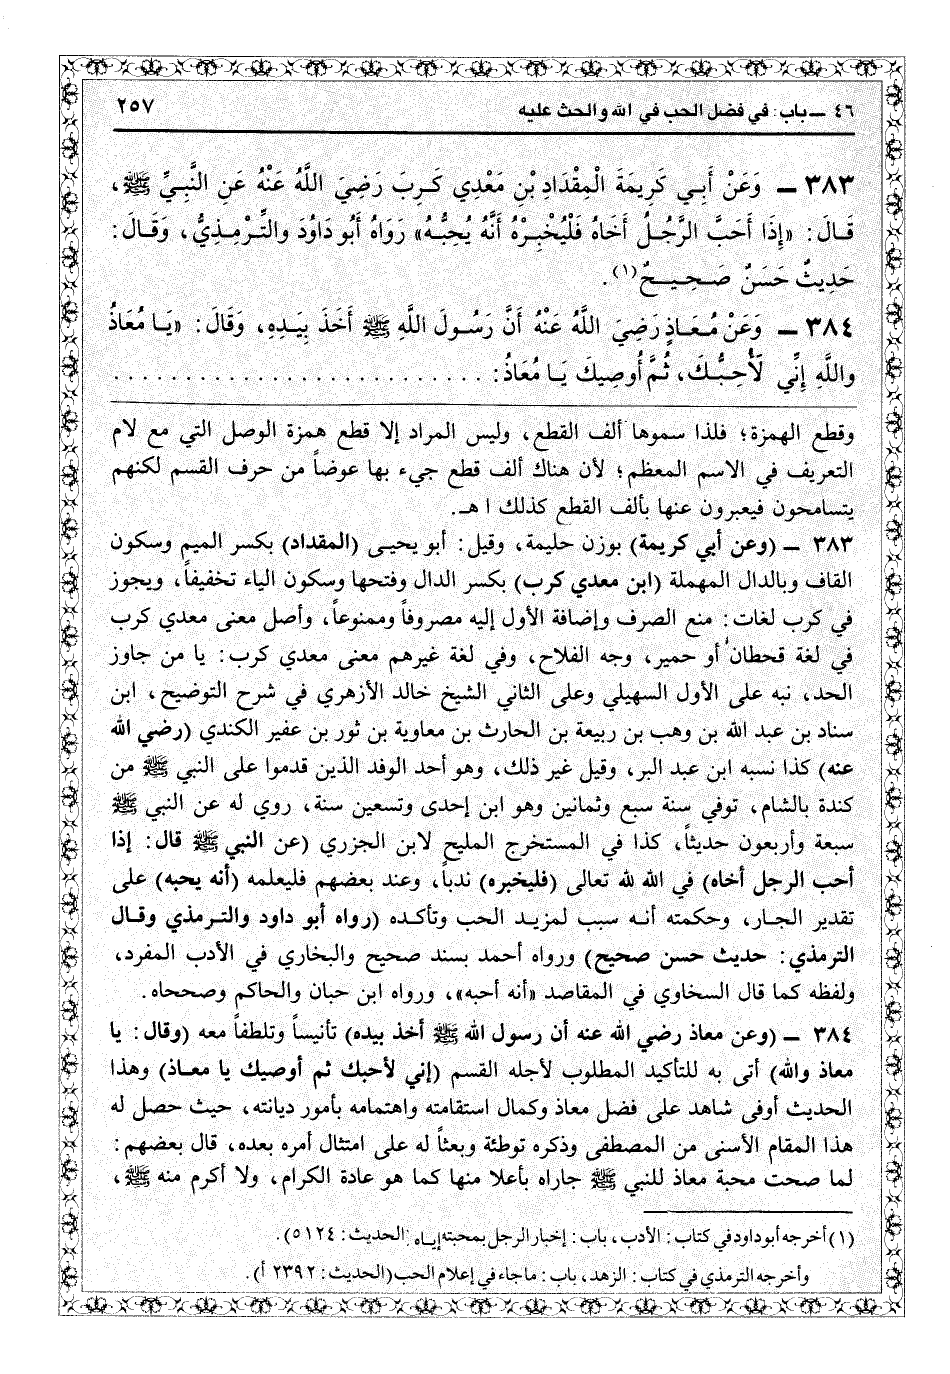 ٤٦ ـ باب: في فضل الحب في الله والحث عليه ٢٥٧
٣٨٣ ـ وَعَنْ أَبِي كَرِيمَةَ الْمِقْدَادِ بْنِ مَعْدِي كَرِبَ رَضِيَ اللَّهُ عَنْهُ عَنِ النَّبِيِّ ﷺ،
قَالَ: «إِذَا أَحَبَّ الرَّجُلُ أَخَاهُ فَلْيُخْبِرْهُ أَنَّهُ يُحِبُّهُ» رَوَاهُ أَبُو دَاوُدَ والتِّرْمِذِيُّ، وَقَالَ:
حَدِيثٌ حَسَنٌ صَحِيحٌ(١).
٣٨٤ ـ وَعَنْ مُعَاذٍ رَضِيَ اللَّهُ عَنْهُ أَنَّ رَسُولَ اللَّهِ ﷺ أَخَذَ بِيَدِهِ، وَقَالَ: «يَا مُعَاذُ
واللَّهِ إِنِّي لَأُحِبُّكَ، ثُمَّ أُوصِيكَ يَا مُعَاذُ: . . . . . . . . . . . . . . . . . . . . . . . . . . .
وقطع الهمزة؛ فلذا سموها ألف القطع، وليس المراد إلا قطع همزة الوصل التي مع لام
التعريف في الاسم المعظم؛ لأن هناك ألف قطع جيء بها عوضاً من حرف القسم لكنهم
يتسامحون فيعبرون عنها بألف القطع كذلك ا هـ.
٣٨٣ ـ (وعن أبي كريمة) بوزن حليمة، وقيل: أبو يحيى (المقداد) بكسر الميم وسكون
القاف وبالدال المهملة (ابن معدي كرب) بكسر الدال وفتحها وسكون الياء تخفيفاً، ويجوز
في كرب لغات: منع الصرف وإضافة الأول إليه مصروفاً وممنوعاً، وأصل معنى معدي كرب
في لغة قحطان أو حمير، وجه الفلاح، وفي لغة غيرهم معنى معدي كرب: يا من جاوز
الحد، نبه على الأول السهيلي وعلى الثاني الشيخ خالد الأزهري في شرح التوضيح، ابن
سناد بن عبد الله بن وهب بن ربيعة بن الحارث بن معاوية بن ثور بن عفير الكندي (رضي الله
عنه) كذا نسبه ابن عبد البر، وقيل غير ذلك، وهو أحد الوفد الذين قدموا على النبي ﷺ من
كندة بالشام، توفي سنة سبع وثمانين وهو ابن إحدى وتسعين سنة، روي له عن النبي ﷺ
سبعة وأربعون حديثاً، كذا في المستخرج المليح لابن الجزري (عن النبي ﷺ قال: إذا
أحب الرجل أخاه) في الله لله تعالى (فليخبره) ندباً، وعند بعضهم فليعلمه (أنه يحبه) على
تقدير الجار، وحكمته أنه سبب لمزيد الحب وتأكده (رواه أبو داود والترمذي وقال
الترمذي: حديث حسن صحيح) ورواه أحمد بسند صحيح والبخاري في الأدب المفرد،
ولفظه كما قال السخاوي في المقاصد «أنه أحبه»، ورواه ابن حبان والحاكم وصححاه.
٣٨٤ ـ (وعن معاذ رضي الله عنه أن رسول الله ﷺ أخذ بيده) تأنيساً وتلطفاً معه (وقال: يا
معاذ والله) أتى به للتأكيد المطلوب لأجله القسم (إني لأحبك ثم أوصيك يا معاذ) وهذا
الحديث أوفى شاهد على فضل معاذ وكمال استقامته واهتمامه بأمور ديانته، حيث حصل له
هذا المقام الأسنى من المصطفى وذكره توطئة وبعثاً له على امتثال أمره بعده، قال بعضهم:
لما صحت محبة معاذ للنبي ﷺ جاراه بأعلا منها كما هو عادة الكرام، ولا أكرم منه ﷺ،
(١) أخرجه أبو داود في كتاب: الأدب، باب: إخبار الرجل بمحبته إياه (الحديث: ٥١٢٤).
وأخرجه الترمذي في كتاب: الزهد، باب: ما جاء في إعلام الحب (الحديث: ٢٣٩٢ أ).